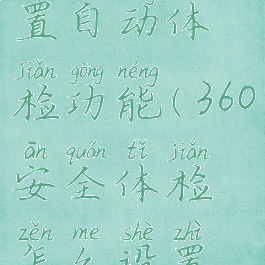 置自动体
jiǎn gōng néng
检功能(360
ān quán tǐ jiǎn
安全体检
zěn me shè zhì
怎么设置